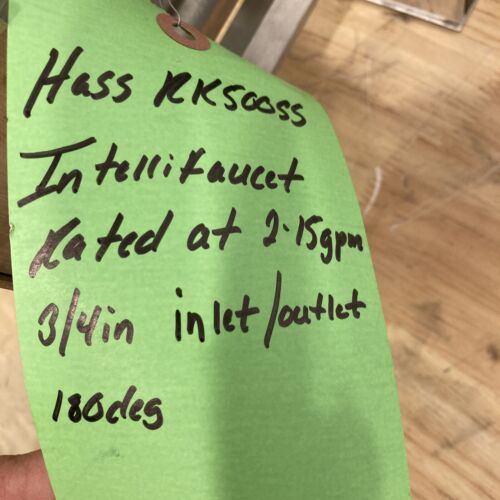 Hass RK500SS
Intellifaucet
Rated at 2-15gpm
3/4in inlet/outlet
180deg